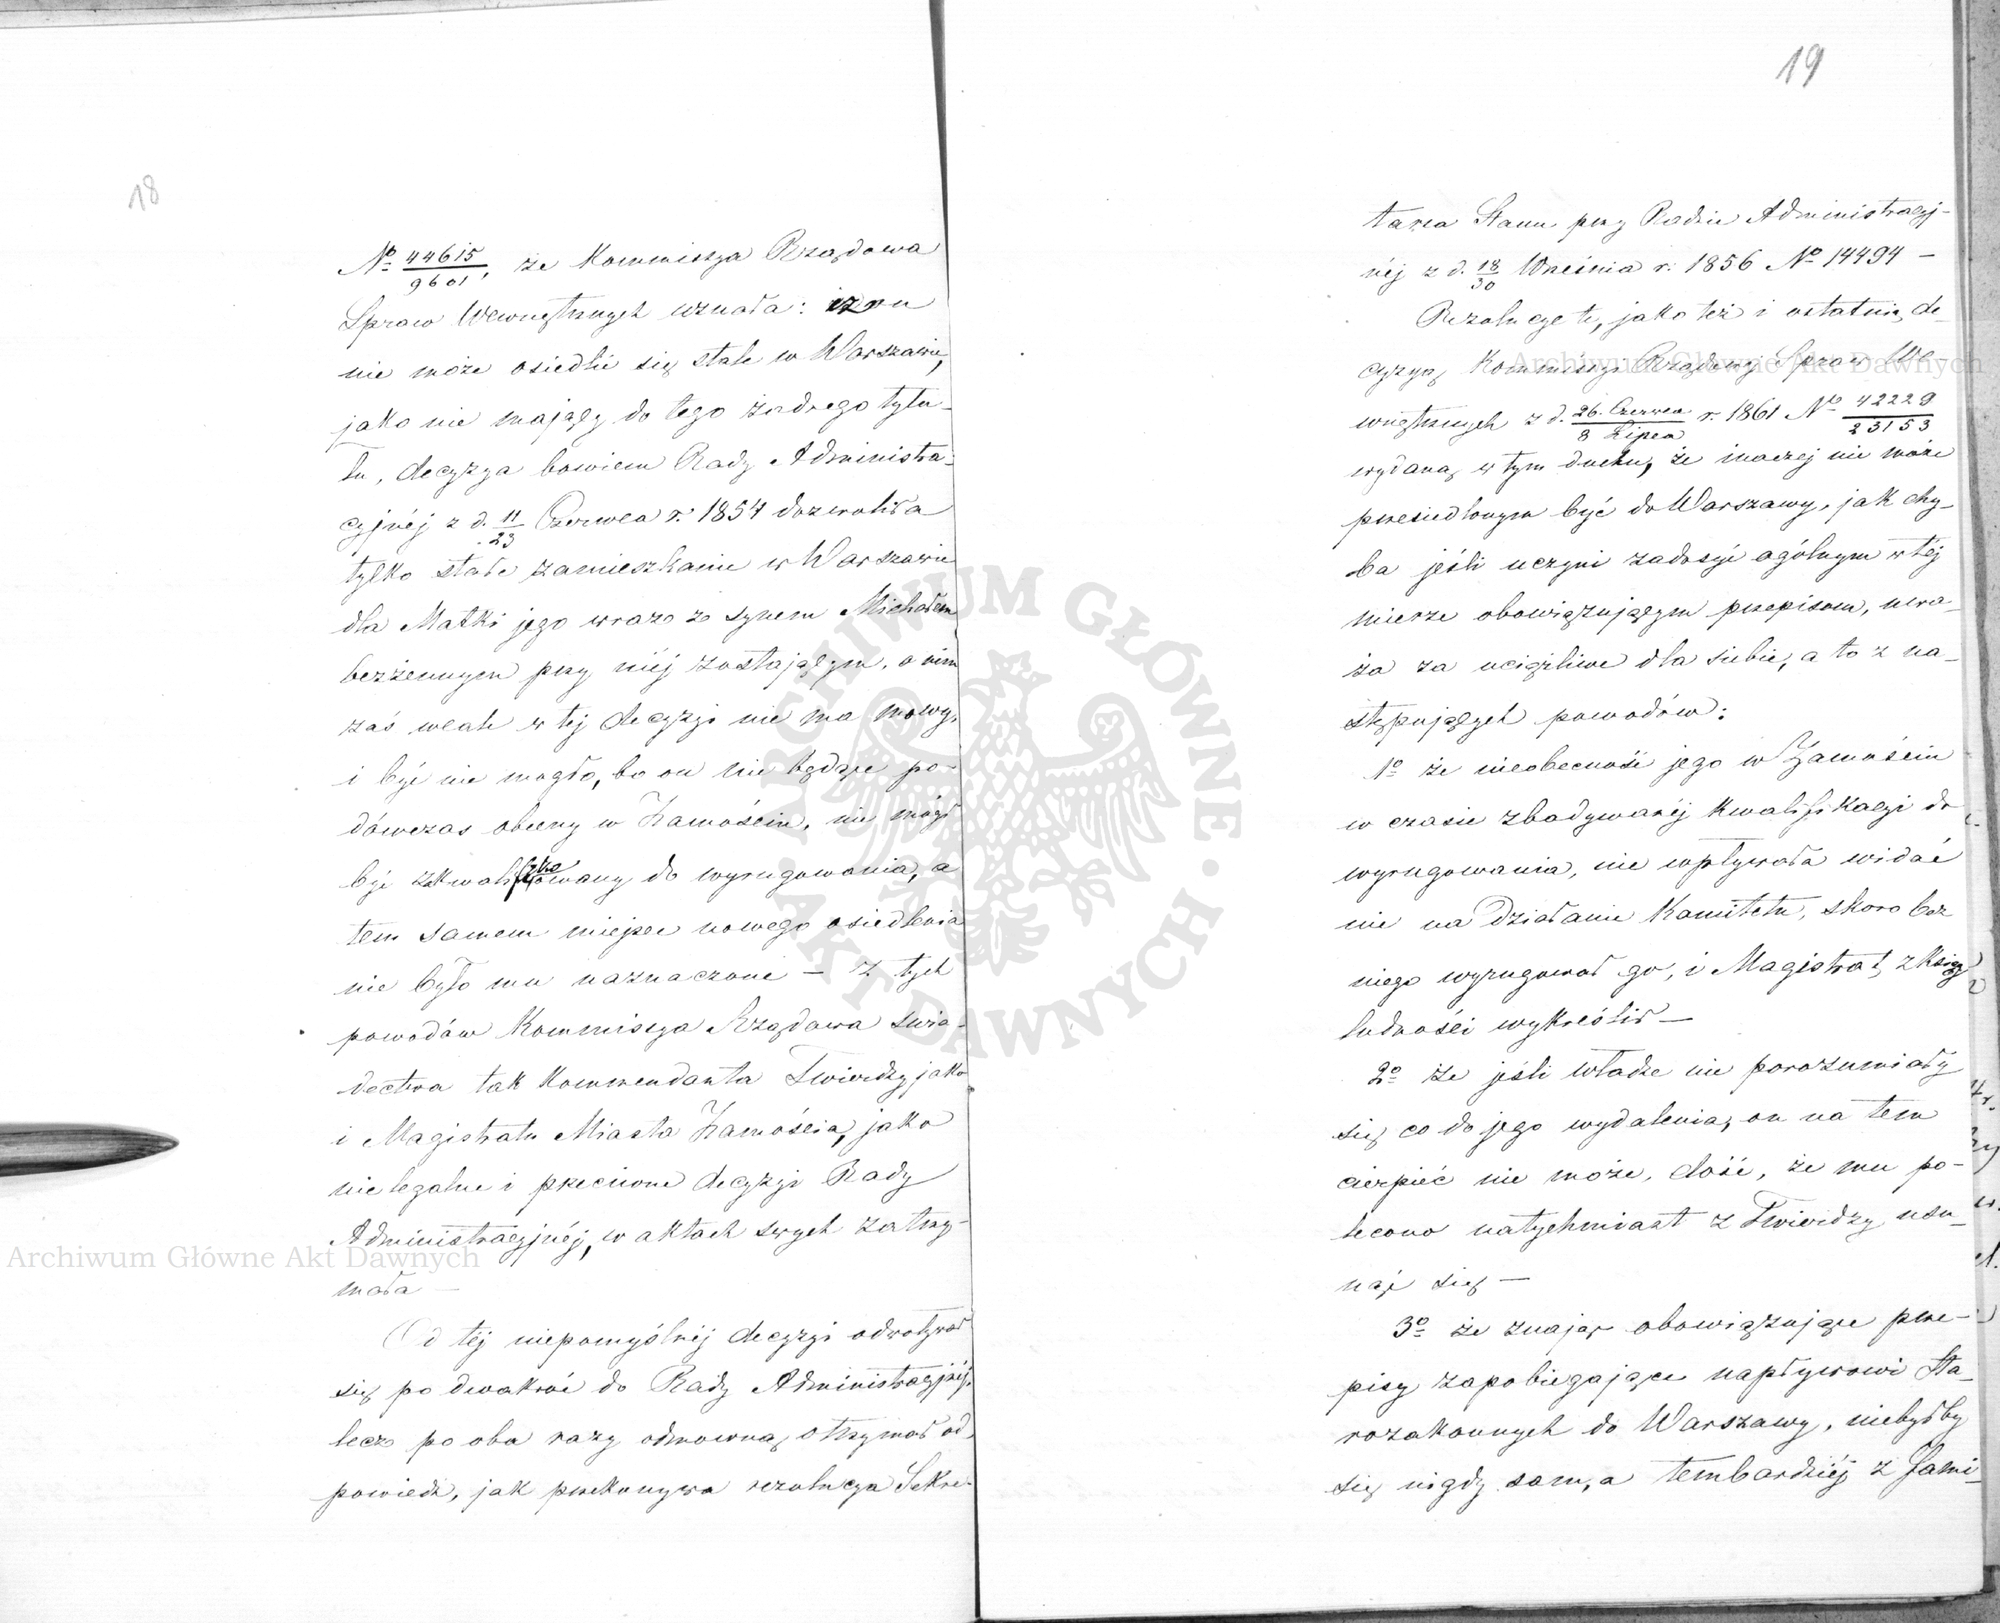 18
№ 44615/9601, że Kommissya Rządowa
Spraw Wewnętrznych uznała: iż on
nie może osiedlić się stale w Warszawie,
jako nie mający do tego żadnego tytu-
łu, decyzya bowiem Rady Administra-
cyjnéj z d. 11/23 Czerwca r. 1854 dozwoliła
tylko stałe zamieszkanie w Warszawie
dla Matki jego wraz ze synem Michałem
bezżennym przy niéj zostającym, o nim
zaś wcale w téj decyzyi nie ma mowy,
i być nie mogło, bo on nie będąc po-
dówczas obecny w Zamościu, nie mógł
być zakwalifikowany do wyrugowania, a
tem samem miejsce nowego osiedlenia
nie było mu naznaczone — Z tych
powodów Kommissya Rządowa świa-
dectwa tak Kommendanta Twierdzy jako
i Magistratu Miasta Zamościa, jako
nielegalne i przeciwne decyzyi Rady
Administracyjnéj, w aktach swych zatrzy-
mała —
Od téj niepomyślnéj decyzyi odwoływał
się po dwakroć do Rady Administracyjnéj,
lecz po oba razy odmowną otrzymał od-
powiedź, jak przekonywa rezolucya Sekre-
19
tarza Stanu przy Radzie Administracyj-
néj z d. 18/30 Września r. 1856 № 14494 —
Rezolucyę tę, jako też i ostatnią de-
cyzyą Kommissyi Rządowéj Spraw We-
wnętrznych z d. 26. Czerwca/8 Lipca r. 1861 № 42229/23153
wydaną w tym duchu, że inaczej nie może
przesiedlonym być do Warszawy, jak chy-
ba jeśli uczyni zadosyć ogólnym w téj
mierze obowiązującym przepisom, uwa-
ża za uciążliwe dla siebie, a to z na-
stępujących powodów:
1º że nieobecność jego w Zamościu
w czasie zbadywanéj kwalifikacyi do
wyrugowania, nie wpływała widać
nie na działanie Komitetu, skoro bez
niego wyrugował go, i Magistrat z Ksiąg
ludności wykreślił —
2º że jeśli władze nie porozumiały
się co do jego wydalenia, on na tem
cierpieć nie może, dość, że mu po-
lecono natychmiast z Twierdzy usu-
nąć się —
3º że znając obowiązujące prze-
pisy zapobiegające napływowi Sta-
rozakonnych do Warszawy, niebyłby
się nigdy sam, a tembardziéj z fami-
Archiwum Główne Akt Dawnych
Archiwum Główne Akt Dawnych
ARCHIWUM GŁÓWNE AKT DAWNYCH